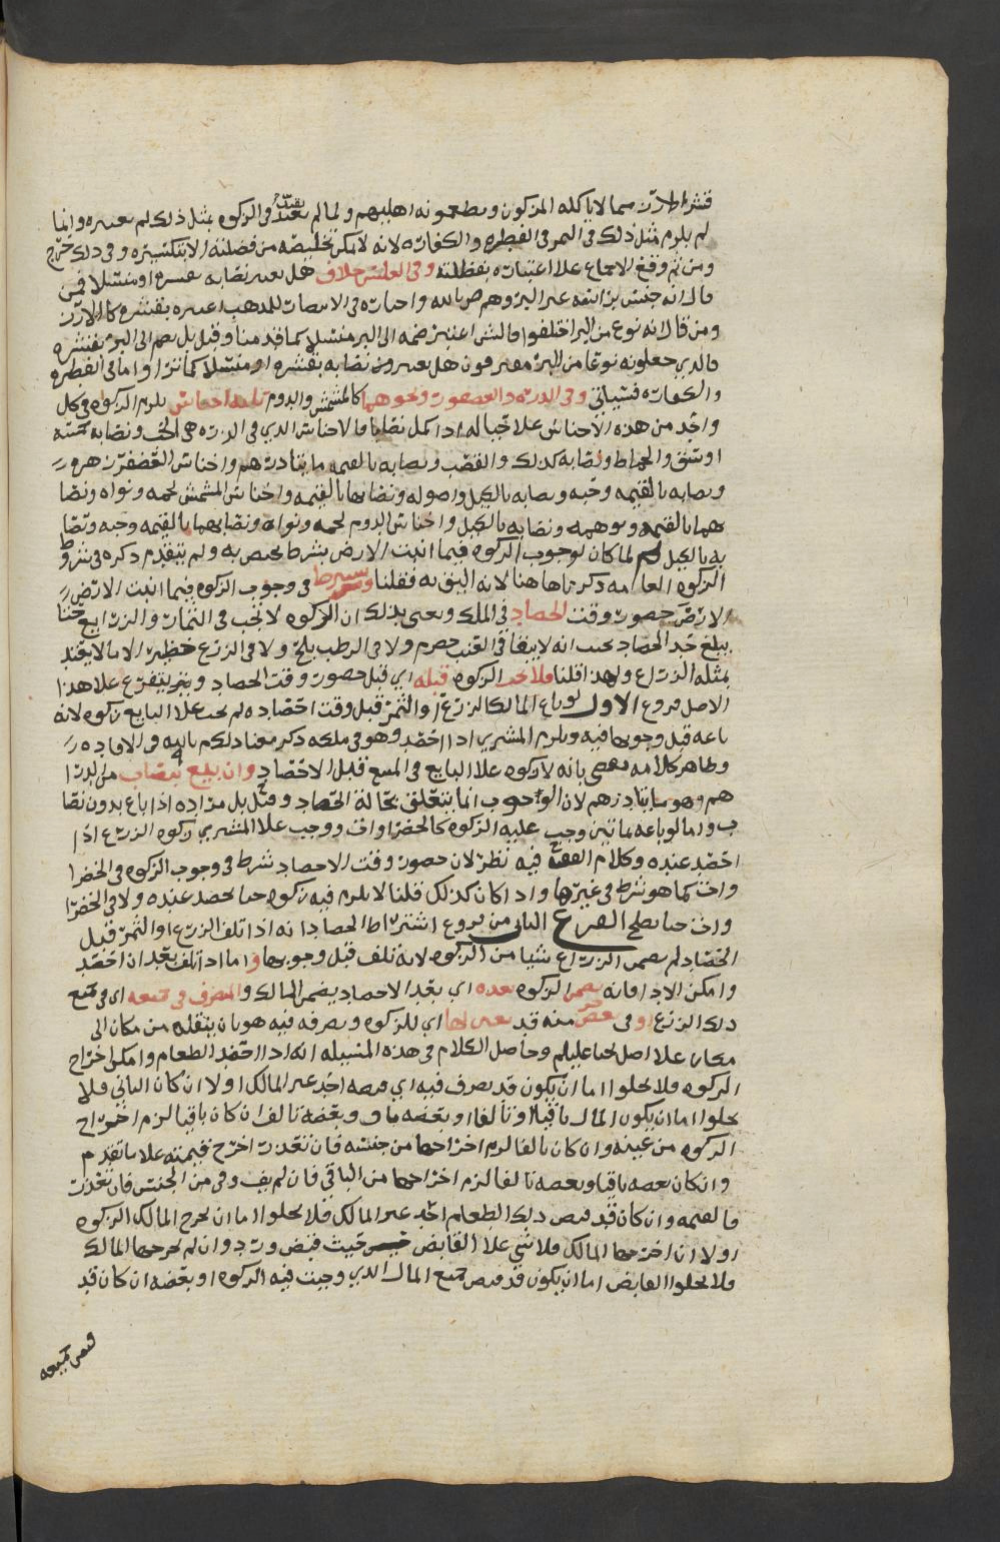 قشر الارز مما لا ياكله المزكون ويطعمونه اهليهم ولما لم يعتد في الزكوه بمثل ذلك لم نعتبره وانما
لم يلزم مثل ذلك في التمر في الفطره والكفاره لانه لا يمكن تخليصه من فضلته الا بتكسيره وفي ذلك حرج
ومن ثم وقع الاجماع علا اعتباره بفضلته وفي العلس خلاف هل يعتبر نصابه بقسره او منسلا فمن
قال انه جنس براسه غير البر وهم ص بالله واختاره في الانتصار للمذهب اعتبره بقشره كالارز
ومن قال انه نوع من البر اختلفوا ضمه الى البر منسلا كما قدمنا وقيل بل يضم الى البر بقشره
والذي جعلونه نوعا من البر مفترقون هل يعتبرون نصابه بقشره او منسلا كما ترا واما في الفطره
والكفاره فسياتي وفي الذره والعصفر ونحوهما كالمشمش والدوم ثلثه اجناس يلزم الزكوه في كل
واحد من هذه الاجناس علا حياله اذا كمل نصابا فالاجناس الذي في الذره هي الحب ونصابه خمسه
اوسق والحماط ونصابه كذلك والقصب ونصابه بالقيمه مايتا درهم واجناس العصفر زهره
ونصابه بالقيمه وحبه ونصابه بالكيل واصوله ونصابها بالقيمه واجناس المشمش لحمه ونواه ونصا
بهما بالقيمه ونصابه بالكيل واجناس الدوم لحمه ونواه ونصابهما بالقيمه وحبه ونصا
به بالكيل لما كان لوجوب الزكوه فيما انبتت الارض بشرط يختص به ولم يتقدم ذكره في شروط
الزكوه العامه ذكرناها هنا لانه اليق به فقلنا ويشترط في وجوب الزكوه فيما انبتت الارض
حضور وقت الحصاد في الملك ونعني بذلك ان الزكوه لا تجب في الثمار والزرايع حتا
يبلغ حد الحصاد بحيث انه لا يبقا في العنب حصرم ولا في الرطب بلح ولا في الزرع خظير الا ما لا يعتد
بمثله الزراع ولهذا قلنا فلا تجب الزكوه قبله اي قبل حضور وقت الحصاد ويتفرع علا هذا
الاصل فروع الاول لو باع المالك الزرع او الثمر قبل وقت احصاده لم تجب علا البايع زكوه لانه
باعه قبل وجوبها فيه ويلزم المشتري اذا احصد وهو في ملكه ذكر معنا ذلك م بالله في الافاده
وظاهر كلامه يقضي بانه لا زكوه علا البايع في المبيع قبل الاحصاد وان بيع بنصاب
هم وهو مايتا درهم لان الوجوب انما يتعلق بحالة الحصاد وقيل بل مراده اذا باع بدون نصا
ب واما لو باعه بمايتين وجب عليه الزكوه كالخضراوات ووجب علا المشتري زكوه الزرع اذا
احصد عنده وكلام الفقيه فيه نظر لان حضور وقت الاحصاد شرط في وجوب الزكوه في الخضرا
وات كما هو شرط في غيرها واذا كان كذلك قلنا لا يلزم فيه زكوه حتا يحصد عنده ولا في الخضرا
وات حتا يصلح الفرع الثاني من فروع اشتراط الحصاد انه اذا تلف الزرع او الثمر قبل
الحصاد لم يضمن الزراع شيا من الزكوه لانه تلف قبل وجوبها واما اذا تلف بعد ان احصد
وامكن الادا فانه يضمن الزكوه بعده اي بعد الاحصاد يضمن المالك والمتصرف في جميعه اي في جميع
ذلك الزرع او في بعض منه قد تعين لها اي للزكوه وتصرفه فيه هو بان ينقله من مكان الى
مكان علا اصل يحيا عليلم وحاصل الكلام في هذه المسيله انه اذا احصد الطعام وامكن اخراج
الزكوه فلا يخلوا اما ان يكون قد تصرف فيه اي قبضه احد غير المالك اولا ان كان الثاني فلا
يخلوا اما ان يكون المال باقيا او تالفا او بعضه باق وبعضه تالف ان كان باقيا لزم اخراج
الزكوه من عينه وان كان تالفا لزم اخراجها من جنسه فان تعذرت اخرج قيمته علا ما تقدم
وان كان بعضه باقيا وبعضه تالفا لزم اخراجها من الباقي فان لم يف وفي من الجنس فان تعذرت
فالقيمه وان كان قد قبض ذلك الطعام احد غير المالك فلا يخلوا اما ان يخرج المالك الزكوه
اولا ان اخرجها المالك فلا شي علا القابض حيث قبض ورد وان لم يخرجها المالك
فلا يخلوا القابض اما ان يكون قد قبض جميع المال الذي وجبت فيه الزكوه او بعضه ان كان قد
قبض جميعه